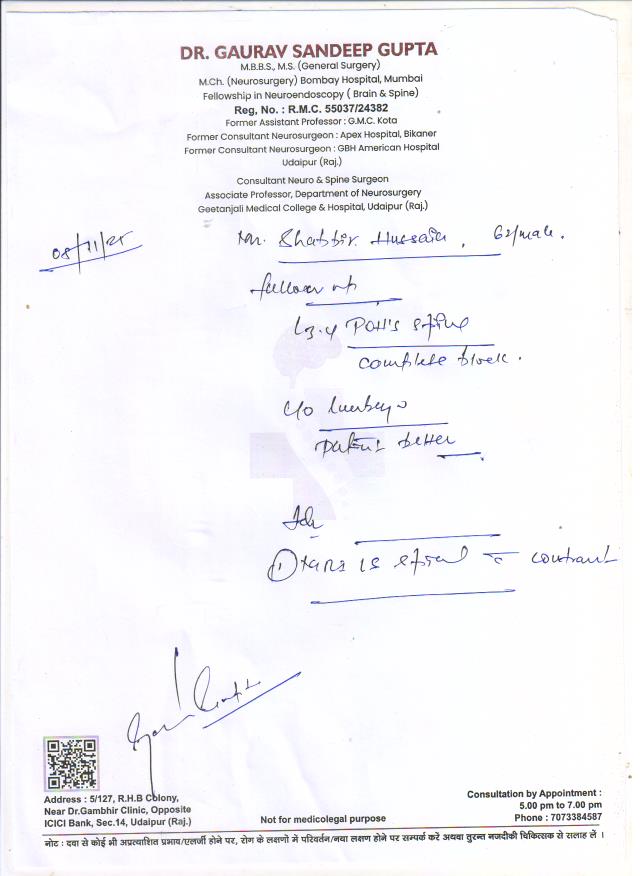 DR. GAURAV SANDEEP GUPTA
M.B.B.S., M.S. (General Surgery)
M.Ch. (Neurosurgery) Bombay Hospital, Mumbai
Fellowship in Neuroendoscopy ( Brain & Spine)
Reg, No. : R.M.C. 55037/24382
Former Assistant Professor : G.M.C. Kota
Former Consultant Neurosurgeon : Apex Hospital, Bikaner
Former Consultant Neurosurgeon : GBH American Hospital
Udaipur (Raj.)
Consultant Neuro & Spine Surgeon
Associate Professor, Department of Neurosurgery
Geetanjali Medical College & Hospital, Udaipur (Raj.)
08/11/25
Mr. Shabbir Hussain, 62/male.
follow up
Pott's spine
complete block.
c/o
patient better
Adv
① spinal contrast
Address : 5/127, R.H.B Colony,
Near Dr.Gambhir Clinic, Opposite
ICICI Bank, Sec.14, Udaipur (Raj.)
Not for medicolegal purpose
Consultation by Appointment :
5.00 pm to 7.00 pm
Phone : 7073384587
नोट : दवा से कोई भी अप्रत्याशित प्रभाव/एलर्जी होने पर, रोग के लक्षणों में परिवर्तन/नया लक्षण होने पर सम्पर्क करें अथवा तुरन्त नजदीकी चिकित्सक से सलाह लें ।